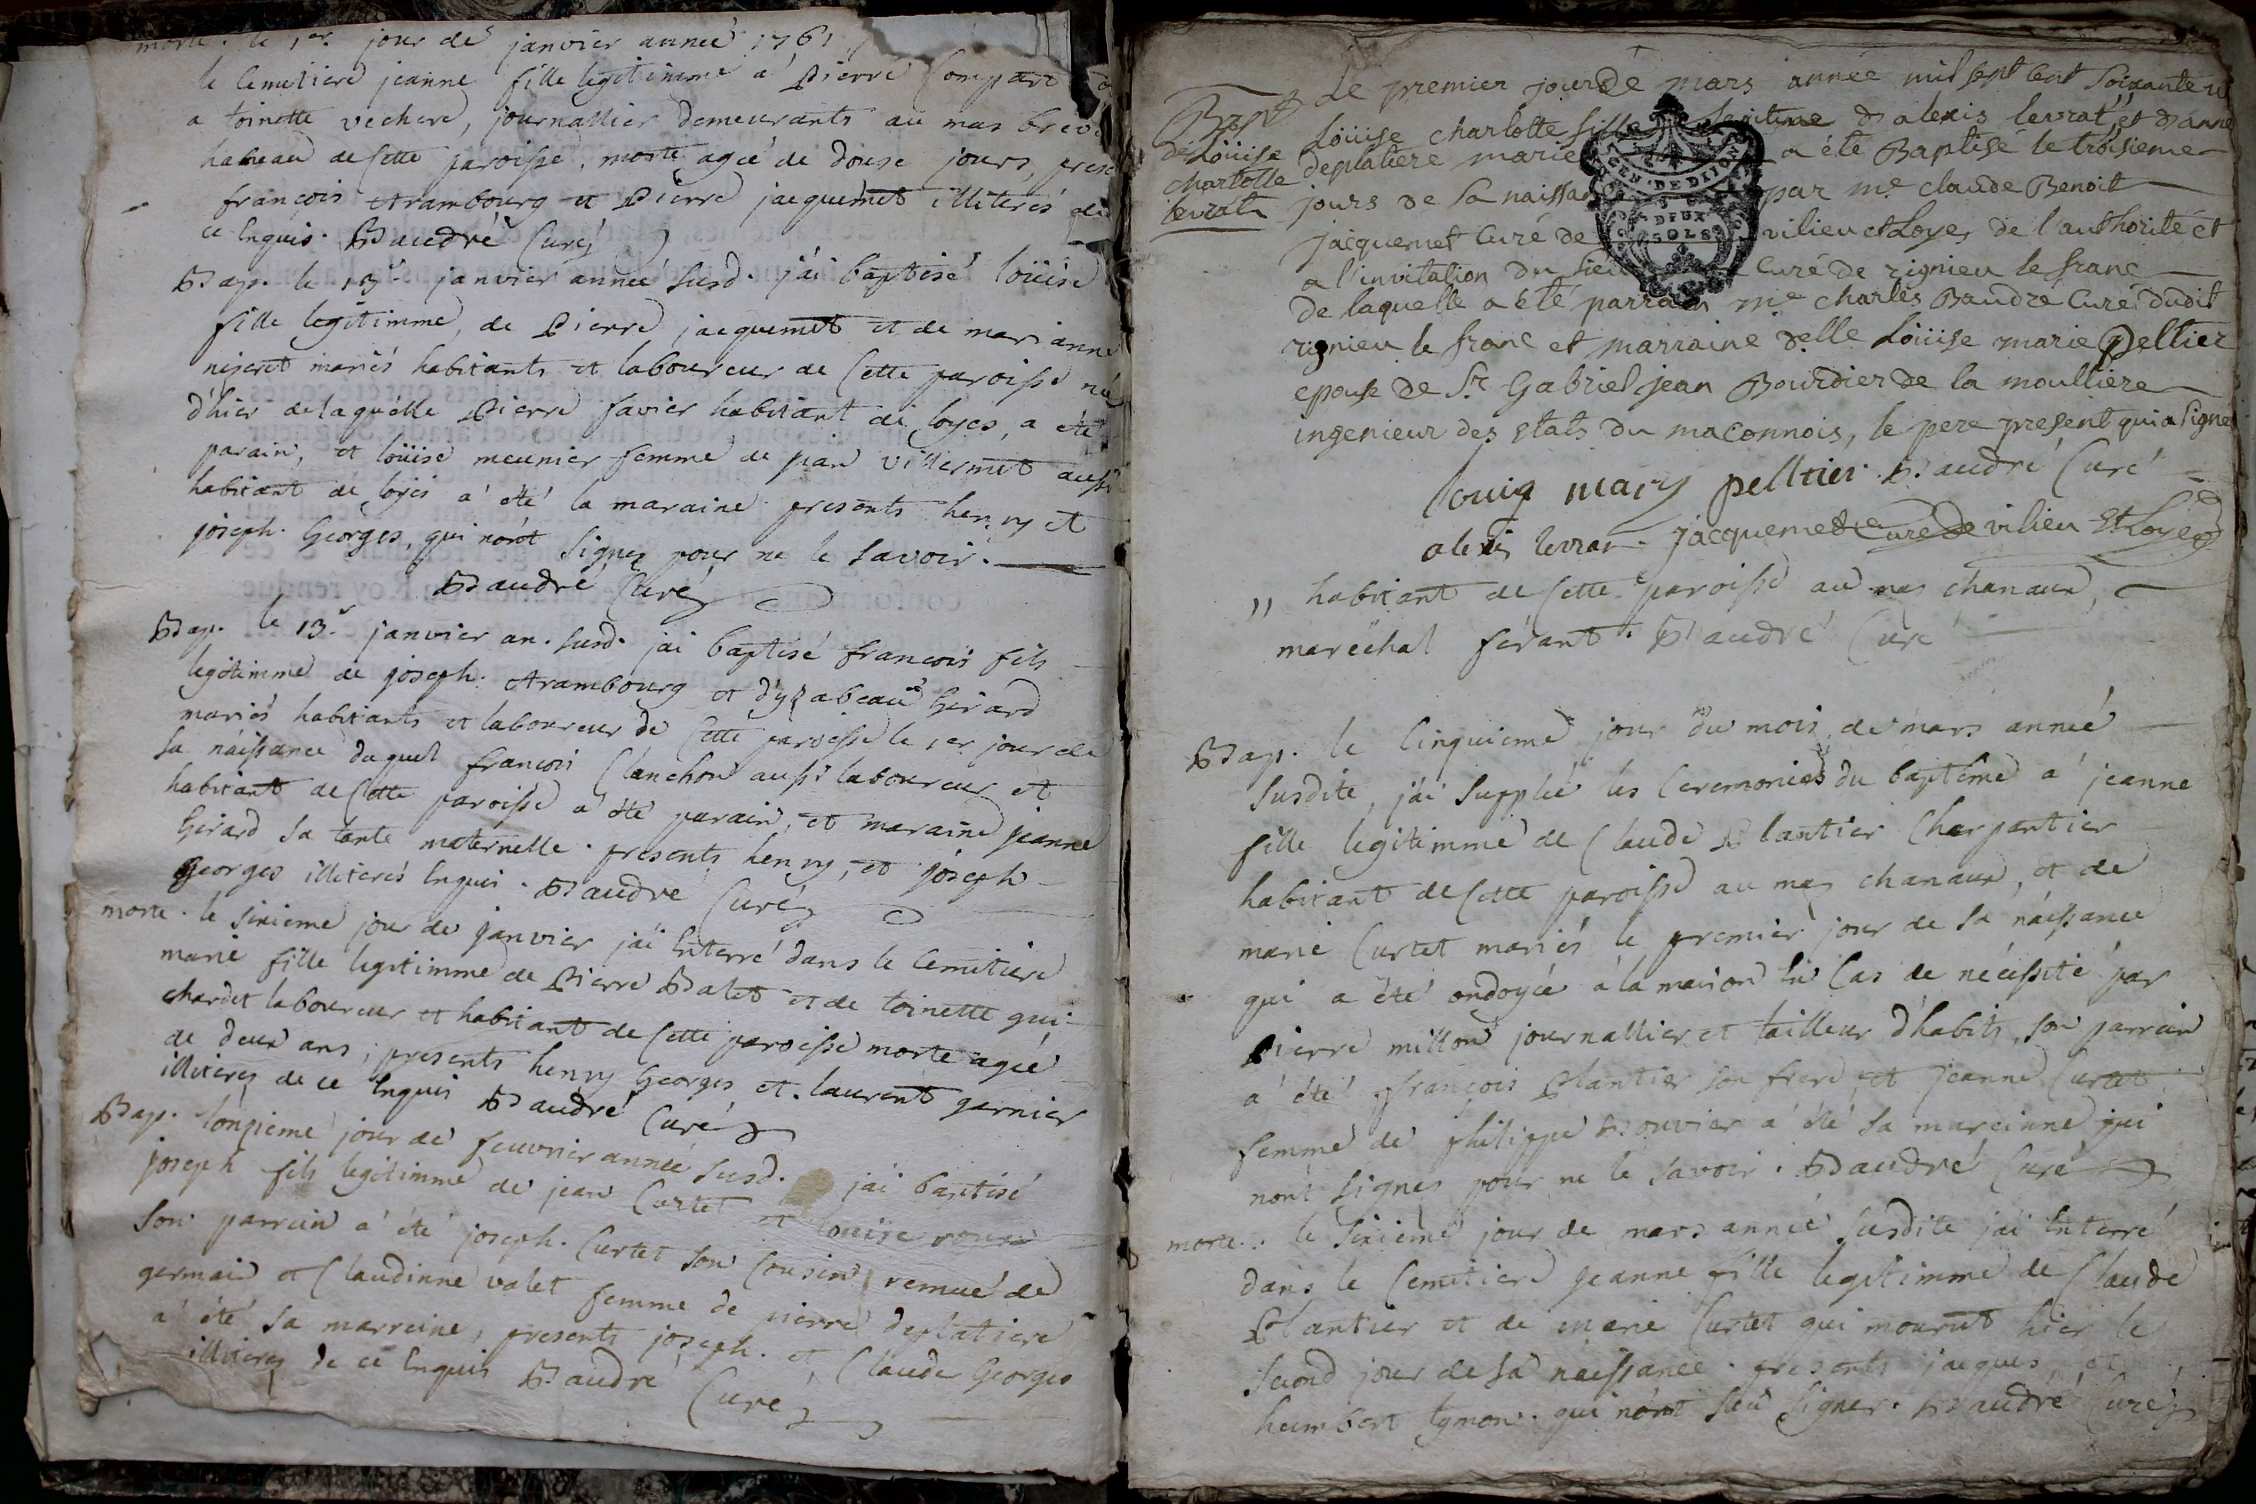 morte. le 1er. jour de janvier année 1761
le Cemetiere jeanne fille legitimme à Pierre Compart
a toinette vechere, journallier demeurants au mas
hameau de Cette paroisse, morte agée de douse jours,
françois Arambourg et Pierre jacquemet illiterés de
ce Enquis. Baudré Curé
Bap. le 13e. janvier année susd. j'ai baptisé loüise
fille legitimme, de Pierre jacquemet et de marianne
mariés habitants et laboureur de Cette paroisse née
d'hier de laquelle Pierre favier habitant de loyes, a été
parain, et loüise meunier femme de jean villermet aussi
habitant de loyes a été la maraine presents henry et
joseph. Georges, qui n'ont signez pour ne le savoir.
Baudré Curé
Bap. le 13e. janvier an. susd. jai baptisé francois fils
legitimme de joseph. Arambourg et d'yzabeau Girard
mariés habitants et laboureur de Cette paroisse le 1er jour de
sa näissance duquel francois Clanchon aussi laboureur et
habitant de Cette paroisse a été parain, et maraine jeanne
Girard sa tante maternelle. presents henry, et joseph
Georges illiterés Enquis. Baudré Curé
morte. le sixieme jour de janvier j'ai Enterré dans le Cemitiere
marie fille legitimme de Pierre Balet et de toinette gui-
chardet laboureur et habitant de Cette paroisse morte agée
de deux ans, presents henry Georges, et laurent garnier
illiterez de ce Enquis Baudré Curé
Bap. l'onzieme jour de feuvrier année susd. j'ai baptisé
joseph fils legitimme de jean Curtet et loüise roux
son parrain a été joseph. Curtet son Cousin remué de
germain et Claudinne valet femme de pierre deplatiere
a été sa marreine, presents joseph. et Claude Georges
illiterez de ce Enquis Baudré Curé
Le premier jour de mars année mil sept cent soixante un
Bapt
de Loüise
charlotte
levrat
Loüise charlotte fille legitime d'alexis levrat et d'anne
deplatiere mariés a été Baptisé le troisieme
jours de sa naissance par me. claude Benoit
jacquemet Curé de vilieu et Loyes de l'authorité et
a l'invitation du sieur Curé de rignieu le franc
GEN. DE DIJON
DEUX
SOLS
de laquelle a été parrain me. charles Baudré Curé dudit
rignieu le franc et marraine delle Loüise marie Pellier
epouse de Sr. Gabriel jean Bourdier de la moulliere
ingenieur des Etats du maconnois, le pere present qui a signé
louig mary pelltier. Baudré Curé
alexis levrat. jacquemet Curé de vilieu Et Loyes
,, habitant de Cette paroisse au mas chanaux,
maréchal ferant. Baudré Curé
Bap. le Cinquieme jour du mois de mars année
susdite, j'ai supplée les Ceremonies du baptême a jeanne
fille legitimme de Claude Plantier Charpantier
habitant de Cette paroisse au mas chanaux, et de
marie Curtet mariés le premier jour de sa näissance
qui a été ondoyée à la maison En Cas de nécessité par
Pierre millon journallier et tailleur d'habits, son parrain
a été françois Plantier son frere et jeanne Curtet
femme de philippe Bouvier a été sa mareinne qui
n'ont signes pour ne le savoir. Baudré Curé
morte. le sixieme jour de mars année susdite j'ai Enterré
dans le Cemitiere jeanne fille legitimme de Claude
Plantier et de marie Curtet qui mourut hier le
second jour de sa naissance. presents jacques, et
humbert tymon. qui n'ont sceu signer. Baudré Curé